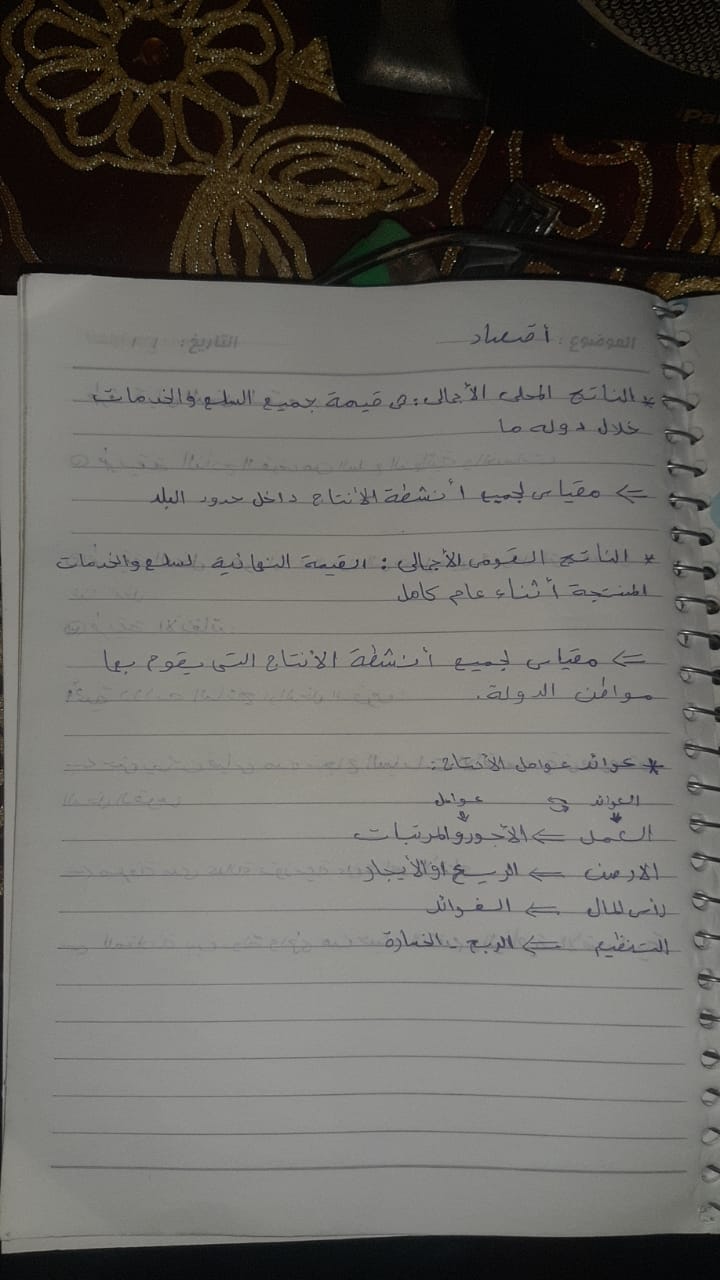 الموضوع: أقتصاد التاريخ: / /
* الناتج المحلى الأجمالى: هى قيمة جميع السلع والخدمات
خلال دوله ما
⇐ مقياس لجميع أنشطة الأنتاج داخل حدود البلد
* الناتج القومى الأجمالى: القيمة النهائية لسلع والخدمات
المنتجة أثناء عام كامل
⇐ مقياس لجميع أنشطة الأنتاج التى يقوم بها
مواطن الدولة.
* عوائد عوامل الأنتاج:
العوائد عوامل
العمل ⇐ الأجور والمرتبات
الارض ⇐ الريع او الأيجار
رأس المال ⇐ الفوائد
التنظيم ⇐ الربح - الخسارة